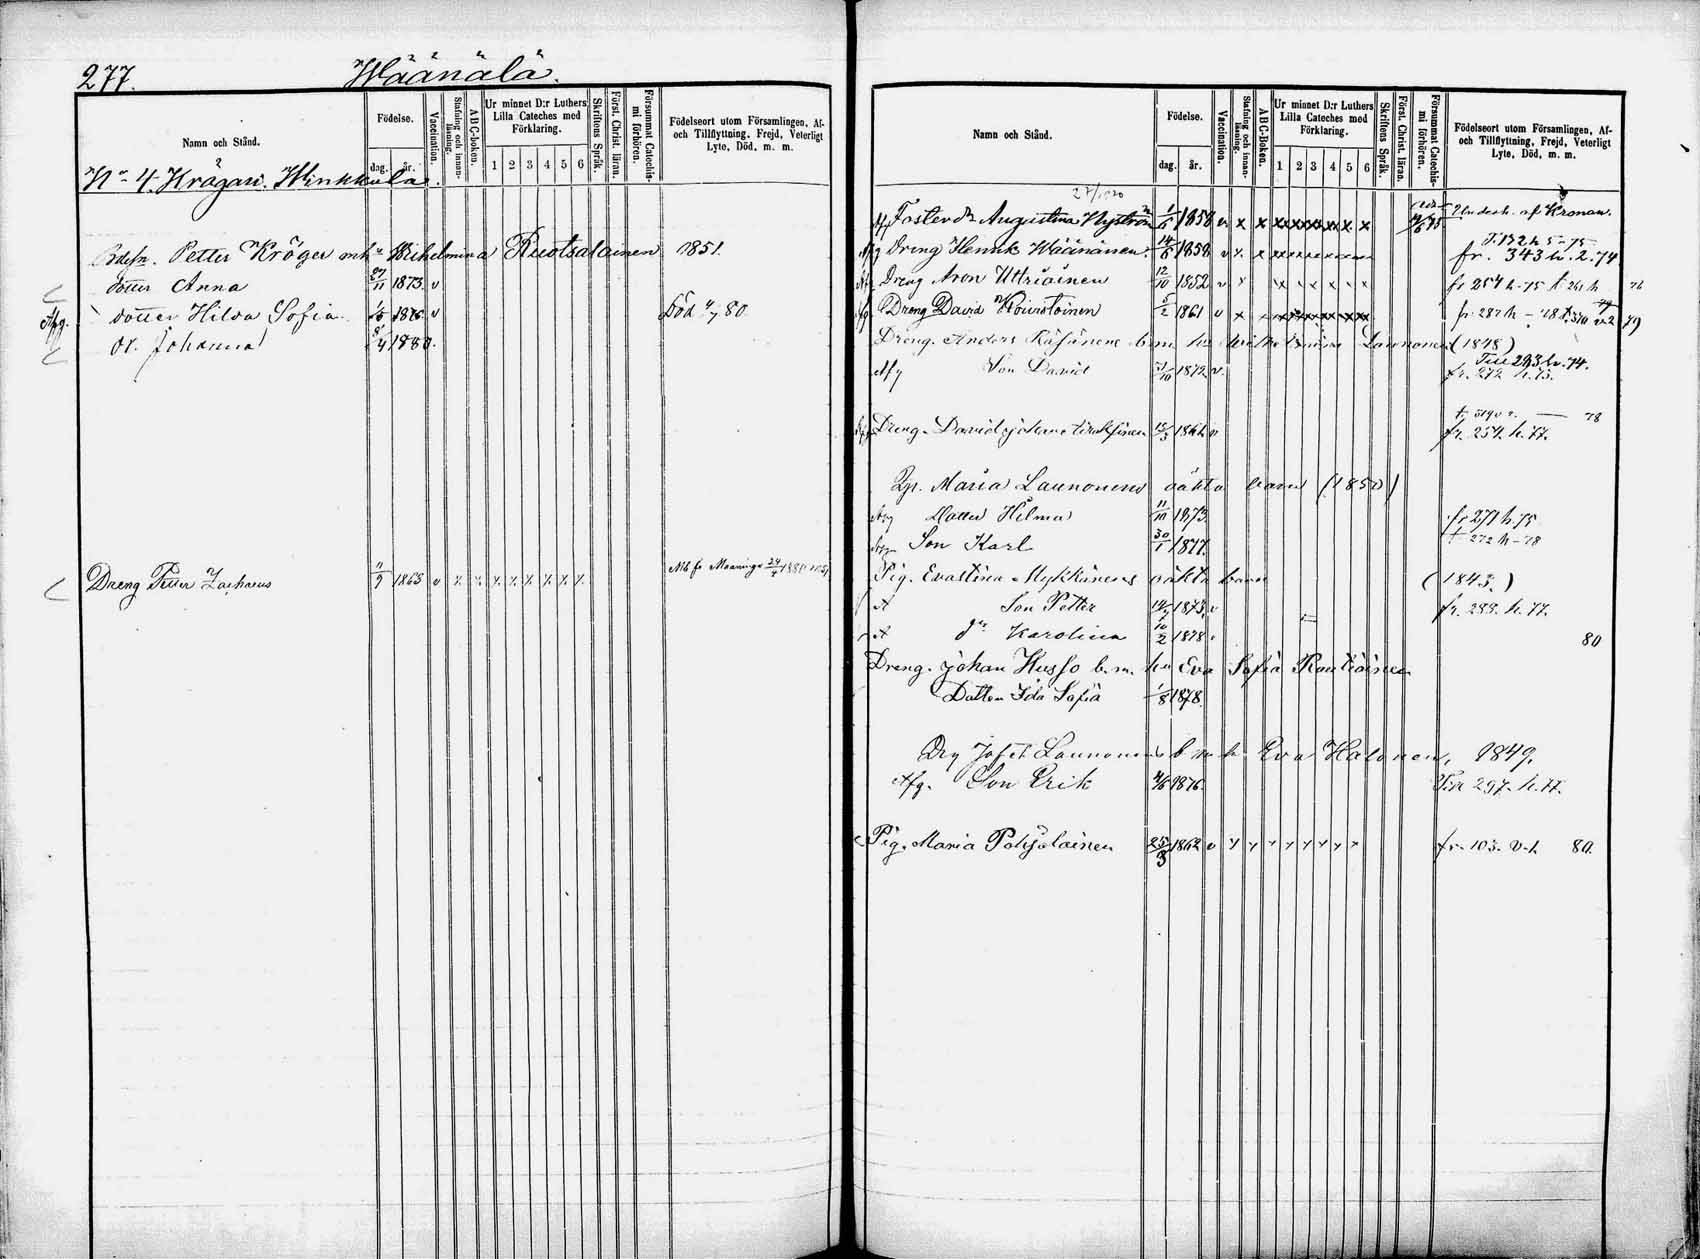 277. Wäänälä.
Namn och Stånd.
Födelse.
dag. år.
Vaccination.
Stafning och innanläsning.
A B C-boken.
Ur minnet D:r Luthers Lilla Cateches med Förklaring.
1 2 3 4 5 6
Skriftens Språk.
Först. Christ. läran.
Försummat Catechismi förhören.
Födelseort utom Församlingen, Af- och Tillflyttning, Frejd, Veterligt Lyte, Död, m. m.
N:o 4. Krögari. Winkkula.
Petter Kröger Wilhelmina Ruotsalainen 1851.
dotter Anna 27/11 1873. v
Afg. dotter Hilda Sofia 1/5 1876. v Död 4/7 80
dr. Johanna 8/4 1880.
Dreng Petter Zacharus 11/9 1863 v x x x x x x x x
Namn och Stånd.
Födelse.
dag. år.
Vaccination.
Stafning och innanläsning.
A B C-boken.
Ur minnet D:r Luthers Lilla Cateches med Förklaring.
1 2 3 4 5 6
Skriftens Språk.
Först. Christ. läran.
Försummat Catechismi förhören.
Födelseort utom Församlingen, Af- och Tillflyttning, Frejd, Veterligt Lyte, Död, m. m.
Foster dr Augustina Nyström 1858 v x x x x x x x x x Underh. af Kronan.
Dreng Henrik Wäänänen 14/8 1858 v x x x x x x x x fr. 343 h. 2. 74
T. 132 h 5 - 75
Dreng Aron Uttriainen 12/10 1852 v x x x x x x x fr 254 h. 75
Dreng David Koivistoinen 5/2 1861 v x x x x x x x fr. 282 h - 78
Dreng. Anders Räsänens b. m. hu Wilhelmina Launonen (1848)
Till 293 h. 74.
Afg Son David 31/10 1872 v. fr. 272 h. 75.
Dreng. David Johan 15/3 v fr. 254. h. 77.
Maria Launonens oäkta barn (1850)
Afg Dotter Hilma 11/11 1873. fr 271 h. 75
Son Karl 30/1 1877. t 272 h - 78
Pig. Evastina Mykkänens oäkta barn (1843.)
A Son Petter 1873. v fr. 288. h. 77.
A Karolina 10/2 1878. 80
Dreng. Johan Husso b. m. hu Eva Sofia Rautiainen
Dotter Ida Sofia 1/8 1878.
Drg Jafet Launonens b m h Eva Halonen, 1849.
Afg. Son Erik 4/6 1876. Till 297. h. 77.
Pig. Maria Pohjolainen 25/3 1862 v x x x x x x x x fr. 103. v. 1. 80.